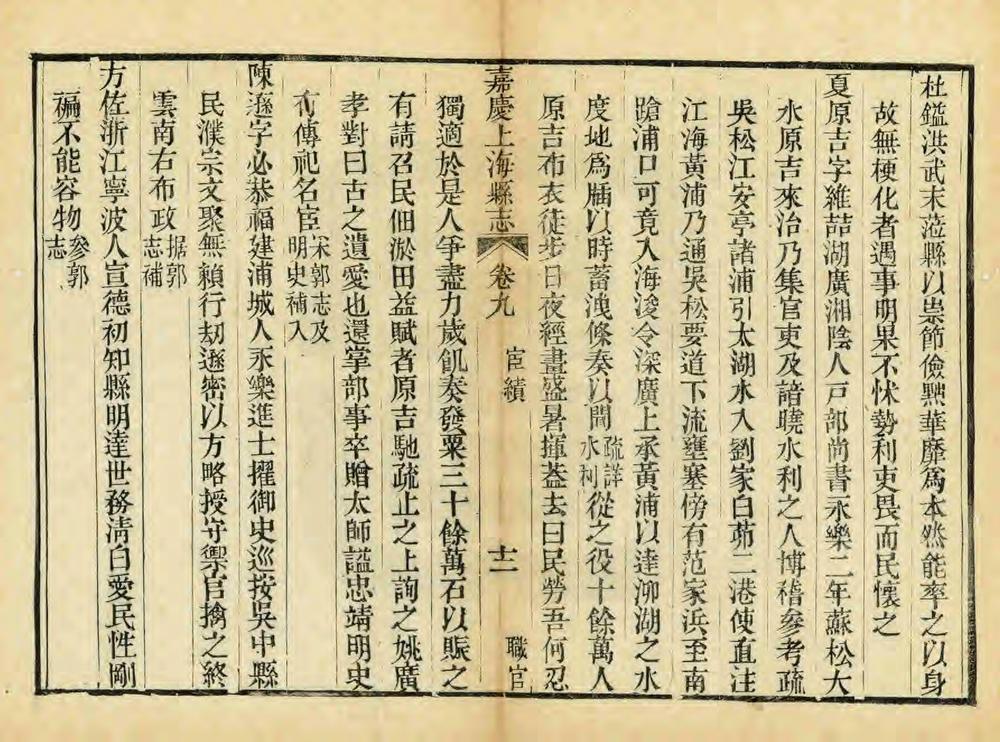 杜鎰洪武末蒞縣以崇節儉黜華靡爲本然能率之以身
故無梗化者遇事明果不怵勢利吏畏而民懷之
夏原吉字維喆湖廣湘陰人戸部尚書永樂二年蘇松大
水原吉來治乃集官吏及諳曉水利之人博稽參考疏
吳松江安亭諸浦引太湖水入劉家白茆二港使直注
江海黃浦乃通吳松要道下流壅塞傍有范家浜至南
蹌浦口可竟入海浚令深廣上承黃浦以達泖湖之水
度地爲牐以時蓄洩條奏以聞疏詳水利從之役十餘萬人
原吉布衣徒步日夜經畫盛暑揮葢去曰民勞吾何忍
嘉慶上海縣志 卷九 宦績 十二 職官
獨適於是人爭盡力歲飢奏發粟三十餘萬石以賑之
有請召民佃淤田益賦者原吉馳疏止之上詢之姚廣
孝對曰古之遺愛也還掌部事卒贈太師謚忠靖明史
有傳祀名宦宋郭志及明史補入
陳遜字必恭福建浦城人永樂進士擢御史巡按吳中縣
民濮宗文聚無賴行刼遜密以方略授守禦官擒之終
雲南右布政据郭志補
方佐浙江寧波人宣德初知縣明達世務淸白愛民性剛
褊不能容物參郭志